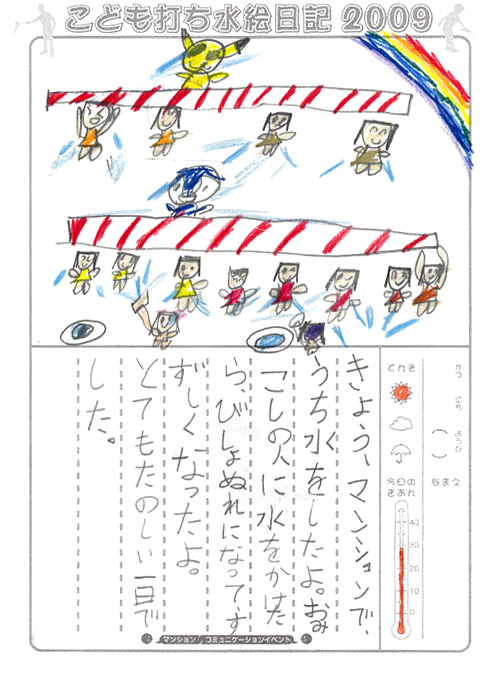 こども打ち水絵日記 2009
がつ にち ようび
( )
なまえ
てんき
今日の
きおん
40
30
20
10
0
きょう、マンションで、
うち水をしたよ。おみ
こしの人に水をかけた
ら、びしょぬれになって、す
ずしくなったよ。
とてもたのしい一日で
した。
マンション コミュニケーションイベント